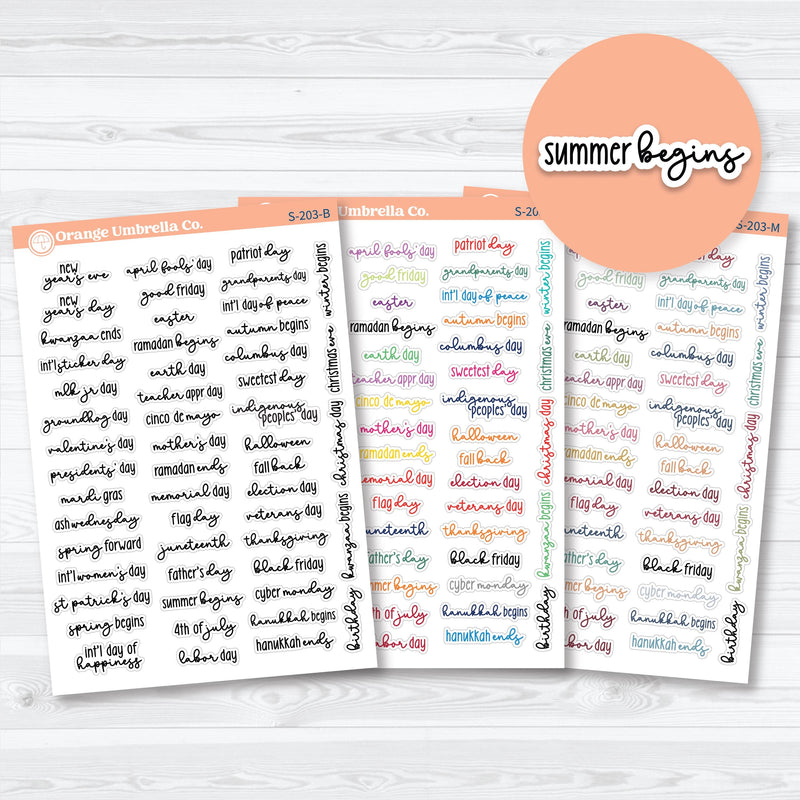 summer begins
Orange Umbrella Co.
S-203-B
new
year's eve
new
year's day
kwanzaa ends
int'l sticker day
mlk jr day
groundhog day
valentine's day
presidents' day
mardi gras
ash wednesday
spring forward
int'l women's day
st patrick's day
spring begins
int'l day of
happiness
april fools' day
good friday
easter
ramadan begins
earth day
teacher appr day
cinco de mayo
mother's day
ramadan ends
memorial day
flag day
juneteenth
father's day
summer begins
4th of july
labor day
patriot day
grandparents day
int'l day of peace
autumn begins
columbus day
sweetest day
indigenous
peoples' day
halloween
fall back
election day
veterans day
thanksgiving
black friday
cyber monday
hanukkah begins
hanukkah ends
winter begins
christmas eve
christmas day
kwanzaa begins
birthday
Umbrella Co.
S-20
april fools' day
good friday
easter
ramadan begins
earth day
teacher appr day
cinco de mayo
mother's day
ramadan ends
memorial day
flag day
juneteenth
father's day
summer begins
4th of july
labor day
patriot day
grandparents day
int'l day of peace
autumn begins
columbus day
sweetest day
indigenous
peoples' day
halloween
fall back
election day
veterans day
thanksgiving
black friday
cyber monday
hanukkah begins
hanukkah ends
winter begins
christmas eve
christmas day
kwanzaa begins
birthday
S-203-M
fools' day
good friday
easter
ramadan begins
earth day
teacher appr day
cinco de mayo
mother's day
ramadan ends
memorial day
flag day
juneteenth
father's day
summer begins
4th of july
labor day
patriot day
grandparents day
int'l day of peace
autumn begins
columbus day
sweetest day
indigenous
peoples' day
halloween
fall back
election day
veterans day
thanksgiving
black friday
cyber monday
hanukkah begins
hanukkah ends
winter begins
christmas eve
christmas day
kwanzaa begins
birthday